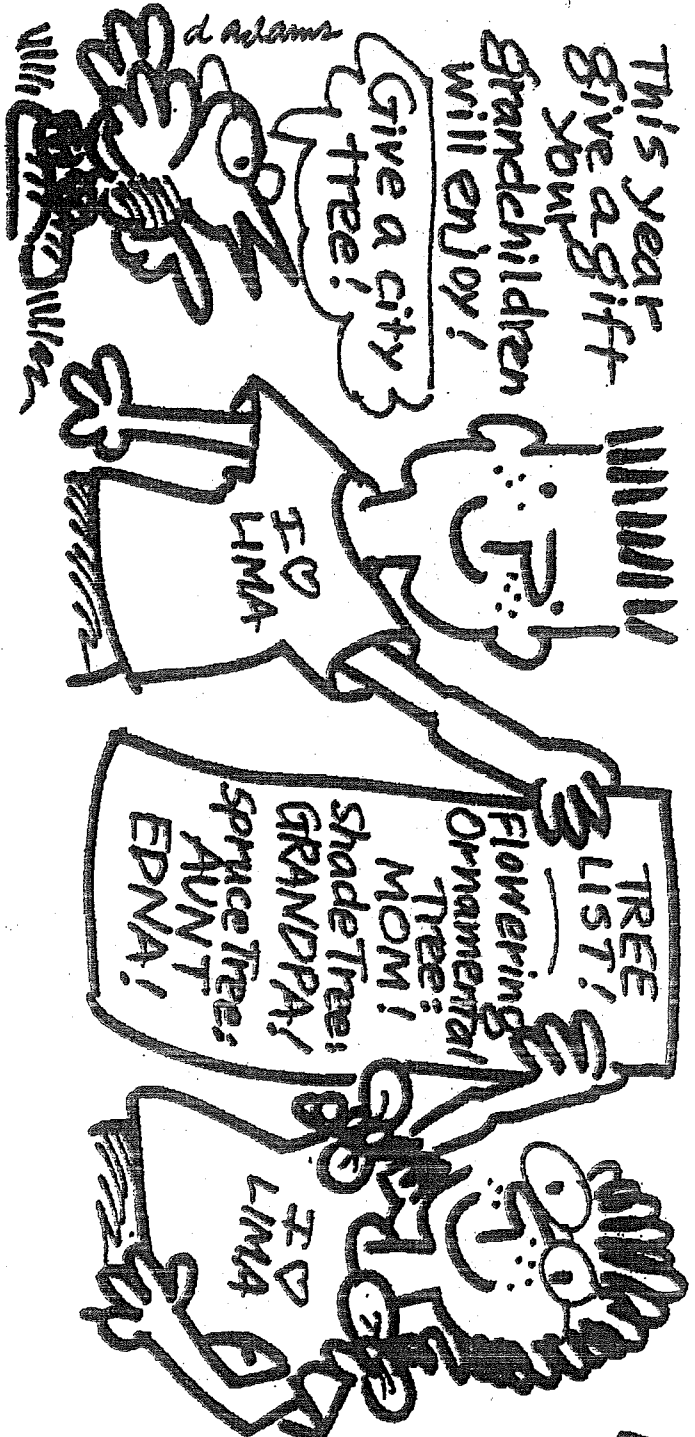 This year
give a gift
your
grandchildren
will enjoy!
Give a city
tree!
d adams
I ♡
LIMA
TREE
LIST!
Flowering
Ornamental
Tree:
MOM!
shade Tree:
GRANDPA!
spruce Tree:
AUNT
EDNA!
I ♡
LIMA